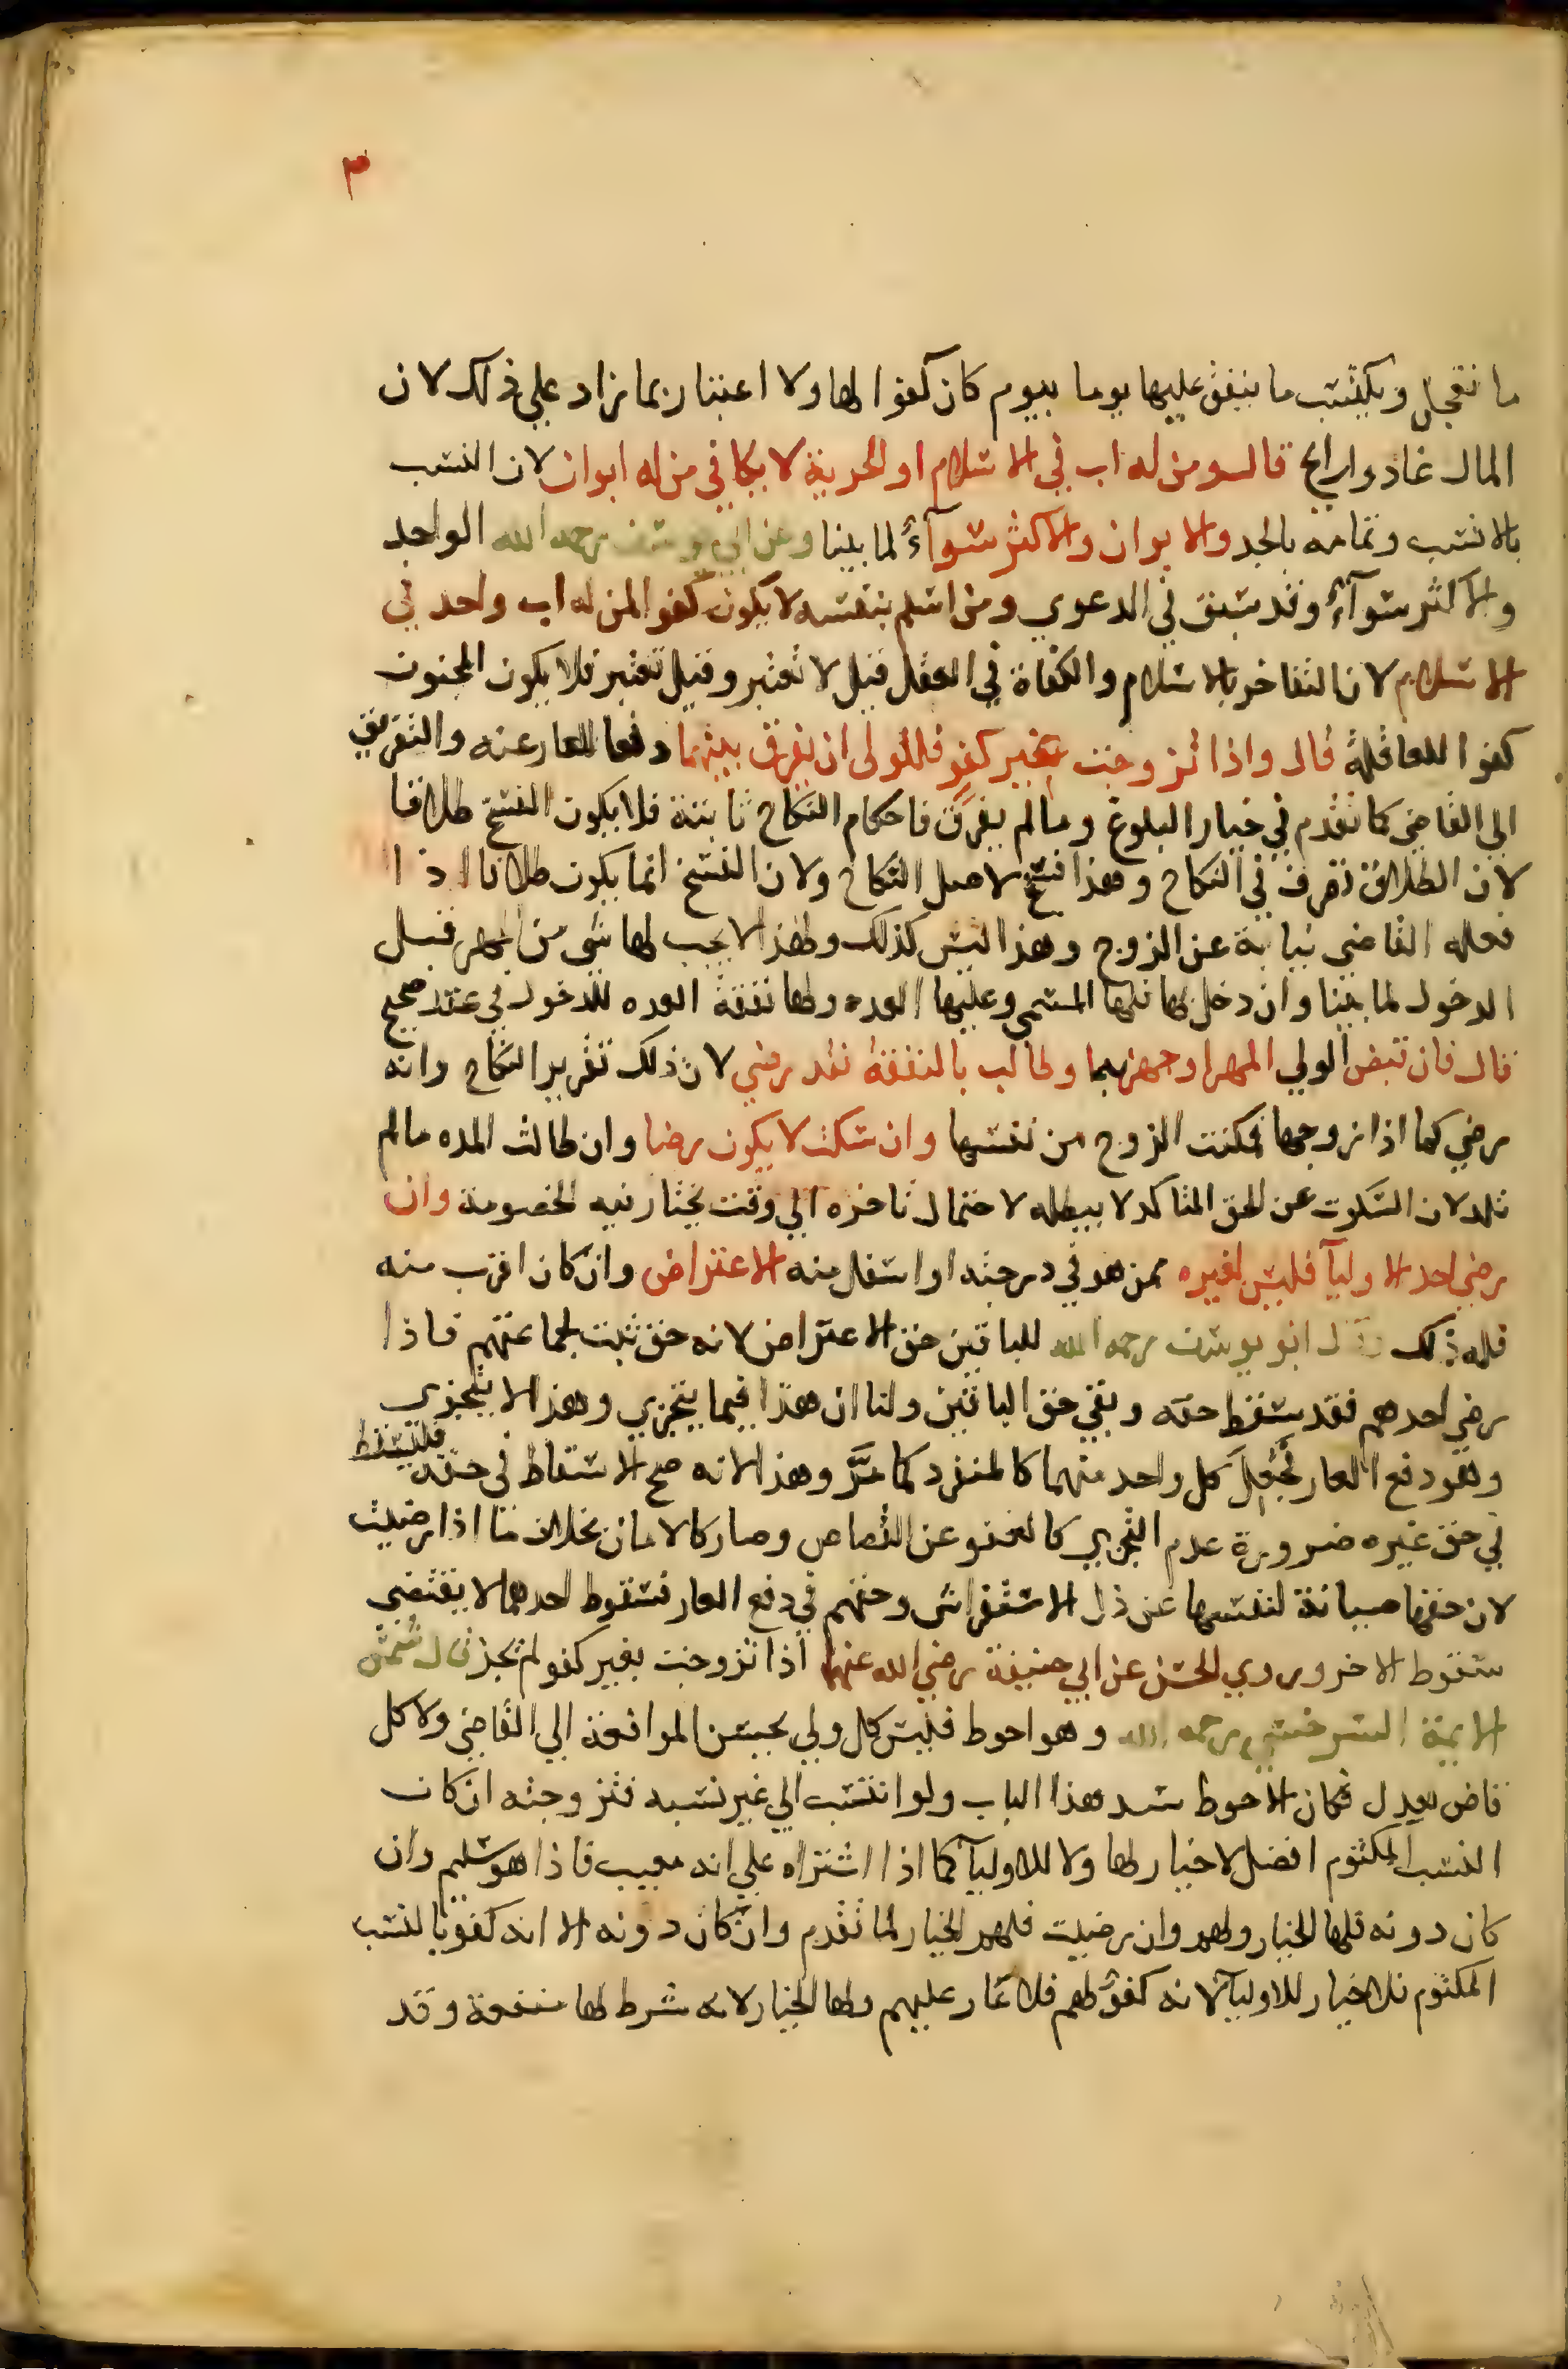 ٣
ما تعجل ويكتسب ما ينفق عليها يوما بيوم كان كفوا لها ولا اعتبار بما زاد على ذلك لان
المال غاد ورايح قال ومن له اب في الاسلام او الحرية لا يكافي من له ابوان لان النسب
بالانتسب وتمامه بالجد والابوان والاكثر سوآءٌ لما بينا وعن ابي يوسف رحمه الله الواحد
والاكثر سوآءٌ وقد سبق في الدعوي ومن اسلم بنفسه لا يكون كفوا لمن له اب واحد في
الاسلام لان التفاخر بالاسلام والكفاة في العقل قيل لا تعتبر وقيل تعتبر فلا يكون المجنون
كفوا للعاقلة قال واذا تزوجت بغير كفو فللولى ان يفرق بينهما دفعا للعار عنه والتفريق
الي القاضي كما تقدم في خيار البلوغ وما لم يفرق فاحكام النكاح ثابتة فلا يكون الفسخ طلاقا
لان الطلاق تصرف في النكاح وهذا فسخ لاصل النكاح ولان الفسخ انما يكون طلاقا اذا
فعله القاضي نيابة عن الزوج وهذا ليس كذلك ولهذا لا يجب لها شي من المهر قبل
الدخول لما بينا وان دخل بها فلها المسمي وعليها العده ولها نفقة العده للدخول في عقد صحيح
قال فان قبض الولي المهر او جهز بهما وطالب بالنفقة فقد رضي لان ذلك تقرير النكاح وانه
رضي كما اذا زوجها فمكنت الزوج من نفسها وان سكت لا يكون رضا وان طالت المده مالم
تلد لان السكوت عن الحق المتاكد لا يبطله لاحتمال تاخره الي وقت يختار فيه الخصومة وان
رضي احد الاوليآ فليس لغيره ممن هو في درجته او اسفل منه الاعتراض وان كان اقرب منه
فله ذلك وقال ابو يوسف رحمه الله للباقين حق الاعتراض لانه حق ثبت لجماعتهم فاذا
رضي احدهم فقد سقط حقه وبقي حق الباقين ولنا ان هذا فيما يتجزي وهذا لا يتجزى
وهو دفع العار فجُعِلَ كل واحد منهما كالمنفرد كما مَرَّ وهذا لانه صح الاسقاط في حقه فليسقط
في حق غيره ضرورة عدم التجزي كالعفو عن القصاص وصار كالامان بخلاف ما اذا رضيت
لان حقها صيانة لنفسها عن ذل الاستفراش وحقهم في دفع العار فسقوط احدهما لا يقتضى
سقوط الاخر وروي الحسن عن ابي حنيفة رضي الله عنهما اذا تزوجت بغير كفو لم يجز قال شمس
الايمة السرخسي رحمه الله وهو احوط فليس كل ولي يحسن المرافعة الي القاضي ولا كل
قاض يعدل فكان الاحوط سد هذا الباب ولو انتسب الي غير نسبه فتزوجته ان كان
النسب المكتوم افضل لا خيار لها ولا للاوليآ كما اذا اشتراه علي انه معيب فاذا هو سليم وان
كان دونه فلها الخيار ولهم وان رضيت فلهم الخيار لما تقدم وان كان دونه الا انه كفو بالنسب
المكتوم فلا خيار للاوليآ لانه كفوٌ لهم فلا عار عليهم ولها الخيار لانه شرط لها منفعة وقد